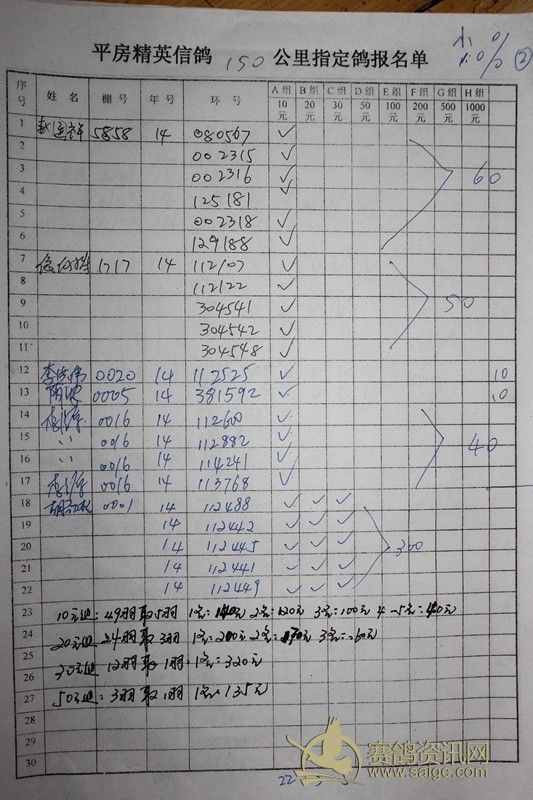 平房精英信鸽 150 公里指定鸽报名单
②
序号 姓名 棚号 年号 环号 A组 10元 B组 20元 C组 30元 D组 50元 E组 100元 F组 200元 G组 500元 H组 1000元
1 5858 14 080567 ✓
2 002315 ✓
3 002316 ✓ 60
4 125181 ✓
5 002318 ✓
6 129188 ✓
7 1717 14 112107 ✓
8 112122 ✓
9 304541 ✓ 50
10 304542 ✓
11 304548 ✓
12 0020 14 112525 ✓ 10
13 0005 14 381592 ✓ 10
14 0016 14 112600 ✓
15 〃 0016 14 112882 ✓ 40
16 〃 0016 14 114241 ✓
17 0016 14 113768 ✓
18 0001 14 112488 ✓ ✓ ✓
19 14 112442 ✓ ✓ ✓
20 14 112445 ✓ ✓ ✓ 300
21 14 112441 ✓ ✓ ✓
22 14 112449 ✓ ✓ ✓
23 10元组: 49羽取5羽 1名: 140元 2名: 120元 3名: 100元 4-5名: 40元
24 20元组 24羽取3羽 1名: 200元 2名: 3名:
25
26 30元组 12羽取1羽: 1名: 320元
27 50元组: 3羽取1羽 1名: 135元
28
29
30
22
赛鸽资讯网
www.saige.com